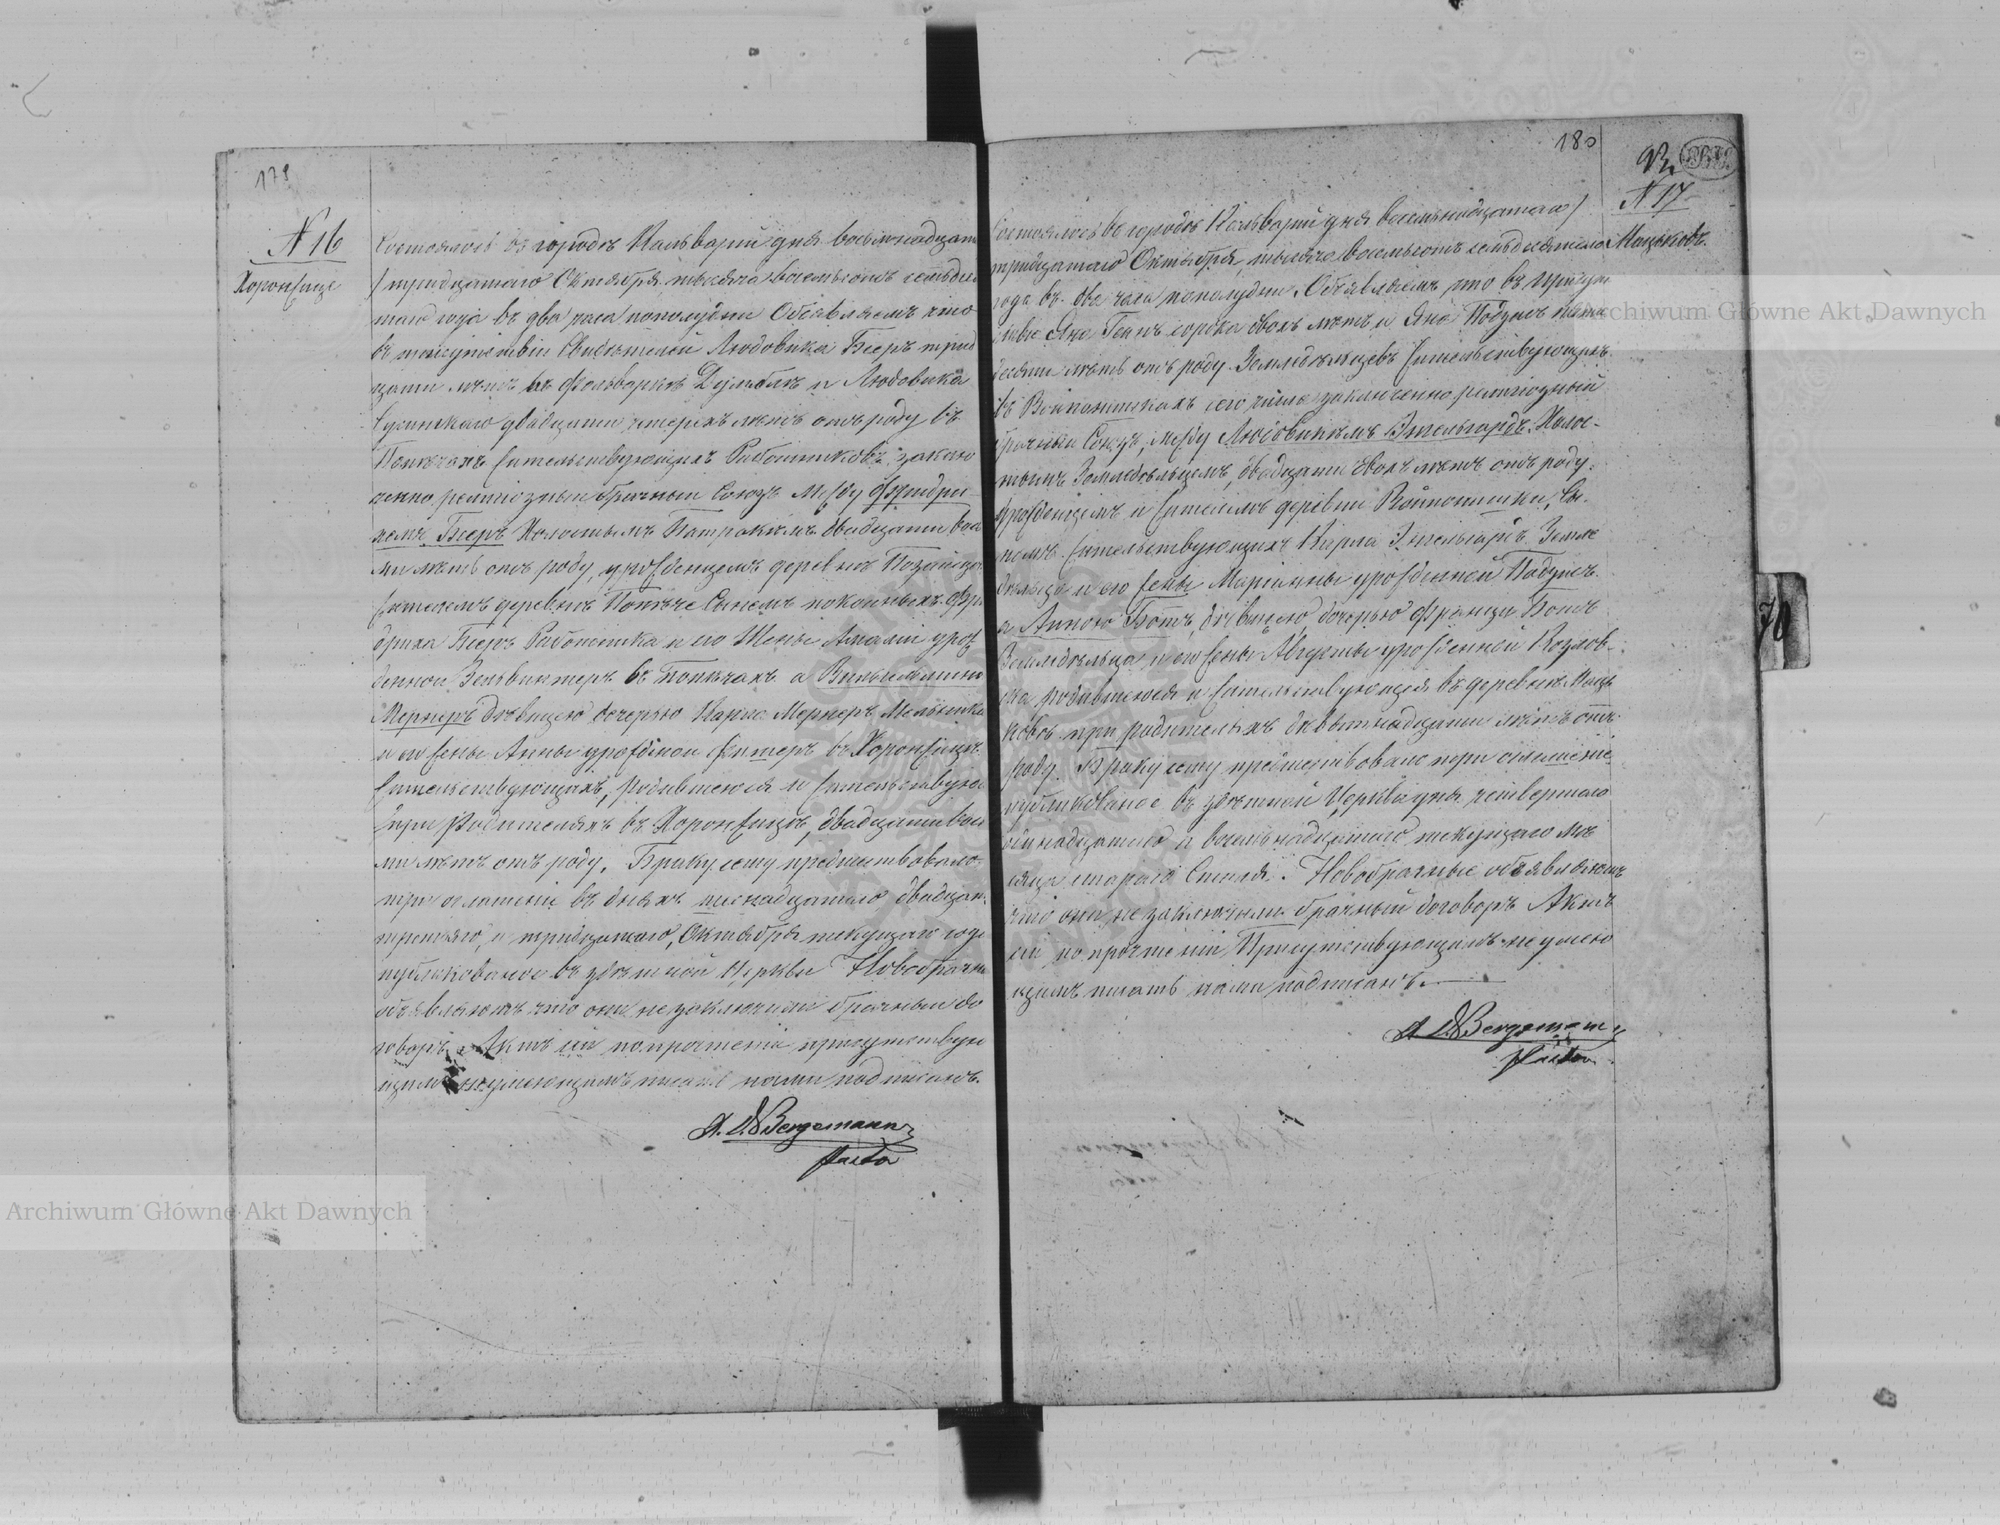 179
N 16
Хоронжице
Состоялось въ городѣ Кальваріи дня восьмнадцат
/тридцатаго Октября тысяча восемьсотъ семьдес
таго года въ два часа пополудни Объявляемъ что
въ присутствіи Свидѣтелей Людовика Бееръ трид
цати лѣтъ въ фольваркѣ и Людовика
двадцати четерехъ лѣтъ отъ роду въ
жительствующихъ Работниковъ, заклю
ченно религіозный брачный Союзъ Между Фридри
хомъ Бееръ Холостымъ двадцати вось
ми лѣтъ отъ роду, урожденцемъ деревни
жителемъ деревни Сыномъ покойныхъ Фри
дриха Бееръ Работника и его Жены Амаліи урож
денной въ а Вильгельминою
Мернеръ дѣвицею дочерью Карла Мернеръ Мельника
и его жены Анны урожденной въ Хоронжицѣ
жительствующихъ, родившеюся и жительствующ
при Родителяхъ въ Хоронжицѣ, двадцати вось
ми лѣтъ отъ роду. Браку сему предшествовало
три оглашеніи въ дняхъ двадцат
третьяго, и тридцатаго, Октября текущаго года
публикованое въ здѣшной Церкви Новобрачны
объявляютъ что они не заключили брачный до
говоръ. Актъ сій по прочтеніи присутствую
щимъ неумеющимъ писать нами подписанъ.
A. D. Bergemann
Pastor
180
N 17
Мацьковъ
Состоялось въ городѣ Кальваріи дня восемьнадцатаго/
тридцатаго Октября, тысяча восемьсотъ семьдесятаго
года въ два часа пополудни. Объявляемъ что въ присут
ствіи Яна сорока двохъ лѣтъ и Яна пять
десяти лѣтъ отъ роду Земледѣльцевъ жительствующихъ
въ Войпонишкахъ сего числа заключенно религіозный
брачный Союзъ, между Людовикомъ Энгельгардъ Холос-
тымъ Земледѣльцемъ, двадцати двохъ лѣтъ отъ роду,
урожденцемъ и жителемъ деревни Войпонишки, Сы-
номъ жительствующихъ Карла Энгельгардъ Земле
дѣльца и его жены Маріянны урожденной
а Анною Ботъ, дѣвицею дочерью Франца Ботъ
Земледѣльца и его жены Августы урожденной Козлов-
ска родившеюся и жительствующей въ деревнѣ Маць
ковѣ при родителяхъ девятнадцати лѣтъ отъ
роду. Браку сему предшествовало три оглашеніе
публикованое въ здѣшной Церкви дня четвертаго
одинадцатаго и восемьнадцатаго текущаго мѣ
сяца стараго Стиля. Новобрачные объявляютъ
что они не заключили брачный договоръ Актъ
сій по прочтеніи Присутствующимъ неумею
щимъ писать нами подписанъ.
A. D. Bergemann
Pastor
70
Archiwum Główne Akt Dawnych
Archiwum Główne Akt Dawnych